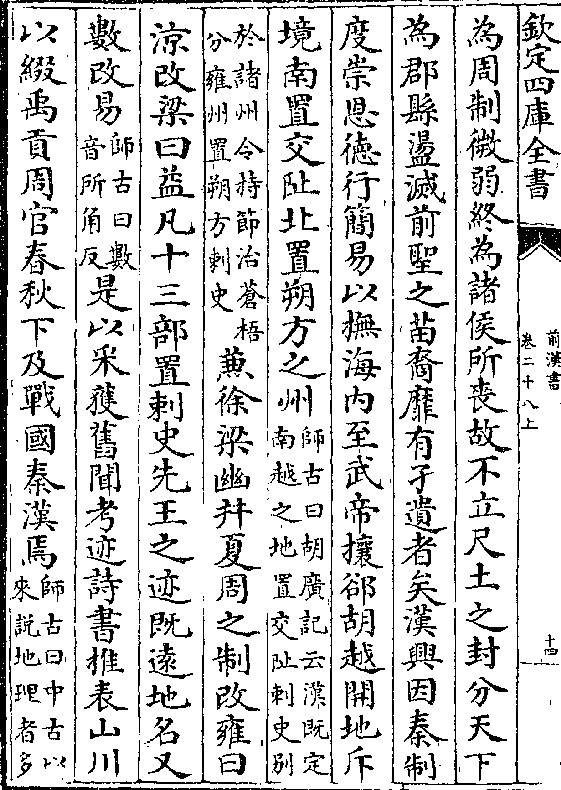 欽定四庫全書
前漢書
卷二十八上
十四
為周制微弱終為諸侯所喪故不立尺土之封分天下
為郡縣盪滅前聖之苗裔靡有孑遺者矣漢興因秦制
度崇恩德行簡易以撫海内至武帝攘郤胡越開地斥
境南置交阯北置朔方之州師古曰胡廣記云漢既定
南越之地置交阯刺史别
於諸州令持節治蒼梧
分雍州置朔方刺史兼徐梁幽并夏周之制改雍曰
涼改梁曰益凡十三部置刺史先王之迹既遠地名又
數改易師古曰數
音所角反是以采獲舊聞考迹詩書推表山川
以綴禹貢周官春秋下及戰國秦漢焉師古曰中古以
來説地理者多